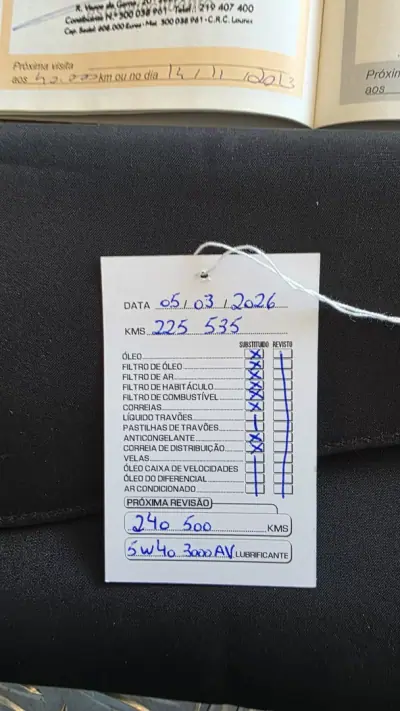 R. Vasco da Gama, 20
Contribuinte N.º 500 038 961 • Telef.: 219 407 400
Cap. Social 608.000 Euros • Mat. 500 038 961 • C.R.C. Loures
Próxima visita
aos 40.000 km ou no dia 14 / 11 / 2013
Próxim
aos
DATA 05 / 03 / 2026
KMS 225 535
SUBSTITUIDO REVISTO
ÓLEO X
FILTRO DE ÓLEO X
FILTRO DE AR X
FILTRO DE HABITÁCULO X
FILTRO DE COMBUSTÍVEL X
CORREIAS X
LÍQUIDO TRAVÕES
PASTILHAS DE TRAVÕES
ANTICONGELANTE X
CORREIA DE DISTRIBUIÇÃO X
VELAS
ÓLEO CAIXA DE VELOCIDADES
ÓLEO DO DIFERENCIAL
AR CONDICIONADO
PRÓXIMA REVISÃO
240 500 KMS
5W40 3000AV LUBRIFICANTE